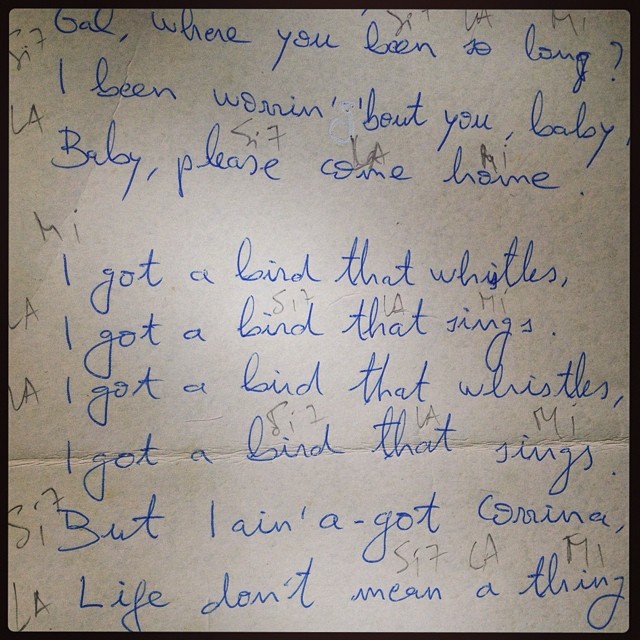 Si7 LA Mi
Gal, where you been so long?
Si7
I been worrin' 'bout you, baby,
LA Si7 LA Mi
Baby, please come home.
Mi
I got a bird that whistles,
LA Si7 LA Mi
I got a bird that sings.
LA I got a bird that whistles,
Si7 LA Mi
I got a bird that sings.
Si7 But I ain' a-got Corrina,
Si7 LA Mi
LA Life don't mean a thing